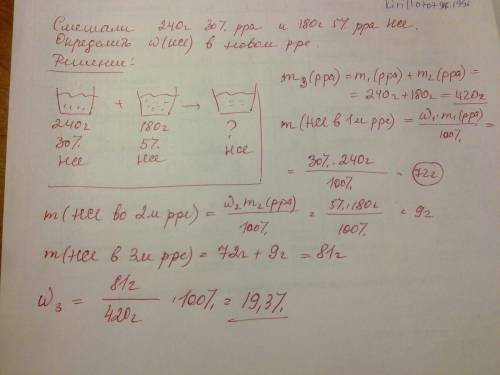 Смешали 240г 30% рра и 180г 5% рра HCl.
Определить ω(HCl) в новом рре.
Решение:
+ →
240г 180г ?
30% 5% HCl
HCl HCl
m₃(рра) = m₁(рра) + m₂(рра) =
= 240г + 180г = 420г
m(HCl в 1м рре) = ω₁·m₁(рра) / 100% =
= 30% · 240г / 100% = 72г
m(HCl во 2м рре) = ω₂ m₂(рра) / 100% = 5% · 180г / 100% = 9г
m(HCl в 3м рре) = 72г + 9г = 81г
ω₃ = 81г / 420г · 100% = 19,3%